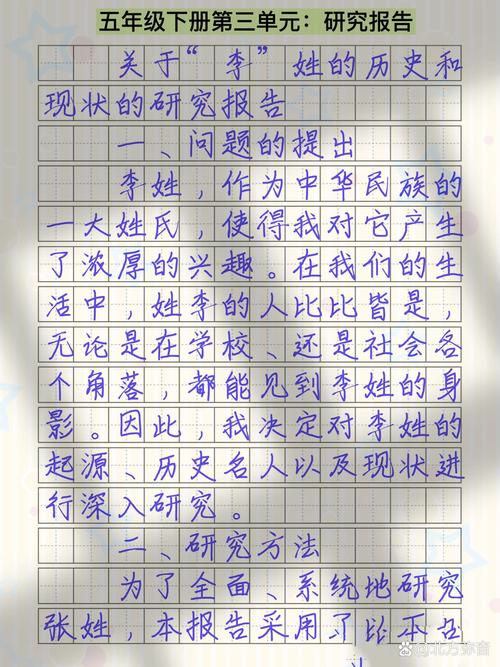 五年级下册第三单元：研究报告
关于“李”姓的历史和
现状的研究报告
一、问题的提出
李姓，作为中华民族的
一大姓氏，使得我对它产生
了浓厚的兴趣。在我们的生
活中，姓李的人比比皆是，
无论是在学校、还是社会各
个角落，都能见到李姓的身
影。因此，我决定对李姓的
起源、历史名人以及现状进
行深入研究。
二、研究方法
为了全面、系统地研究
张姓，本报告采用了比本